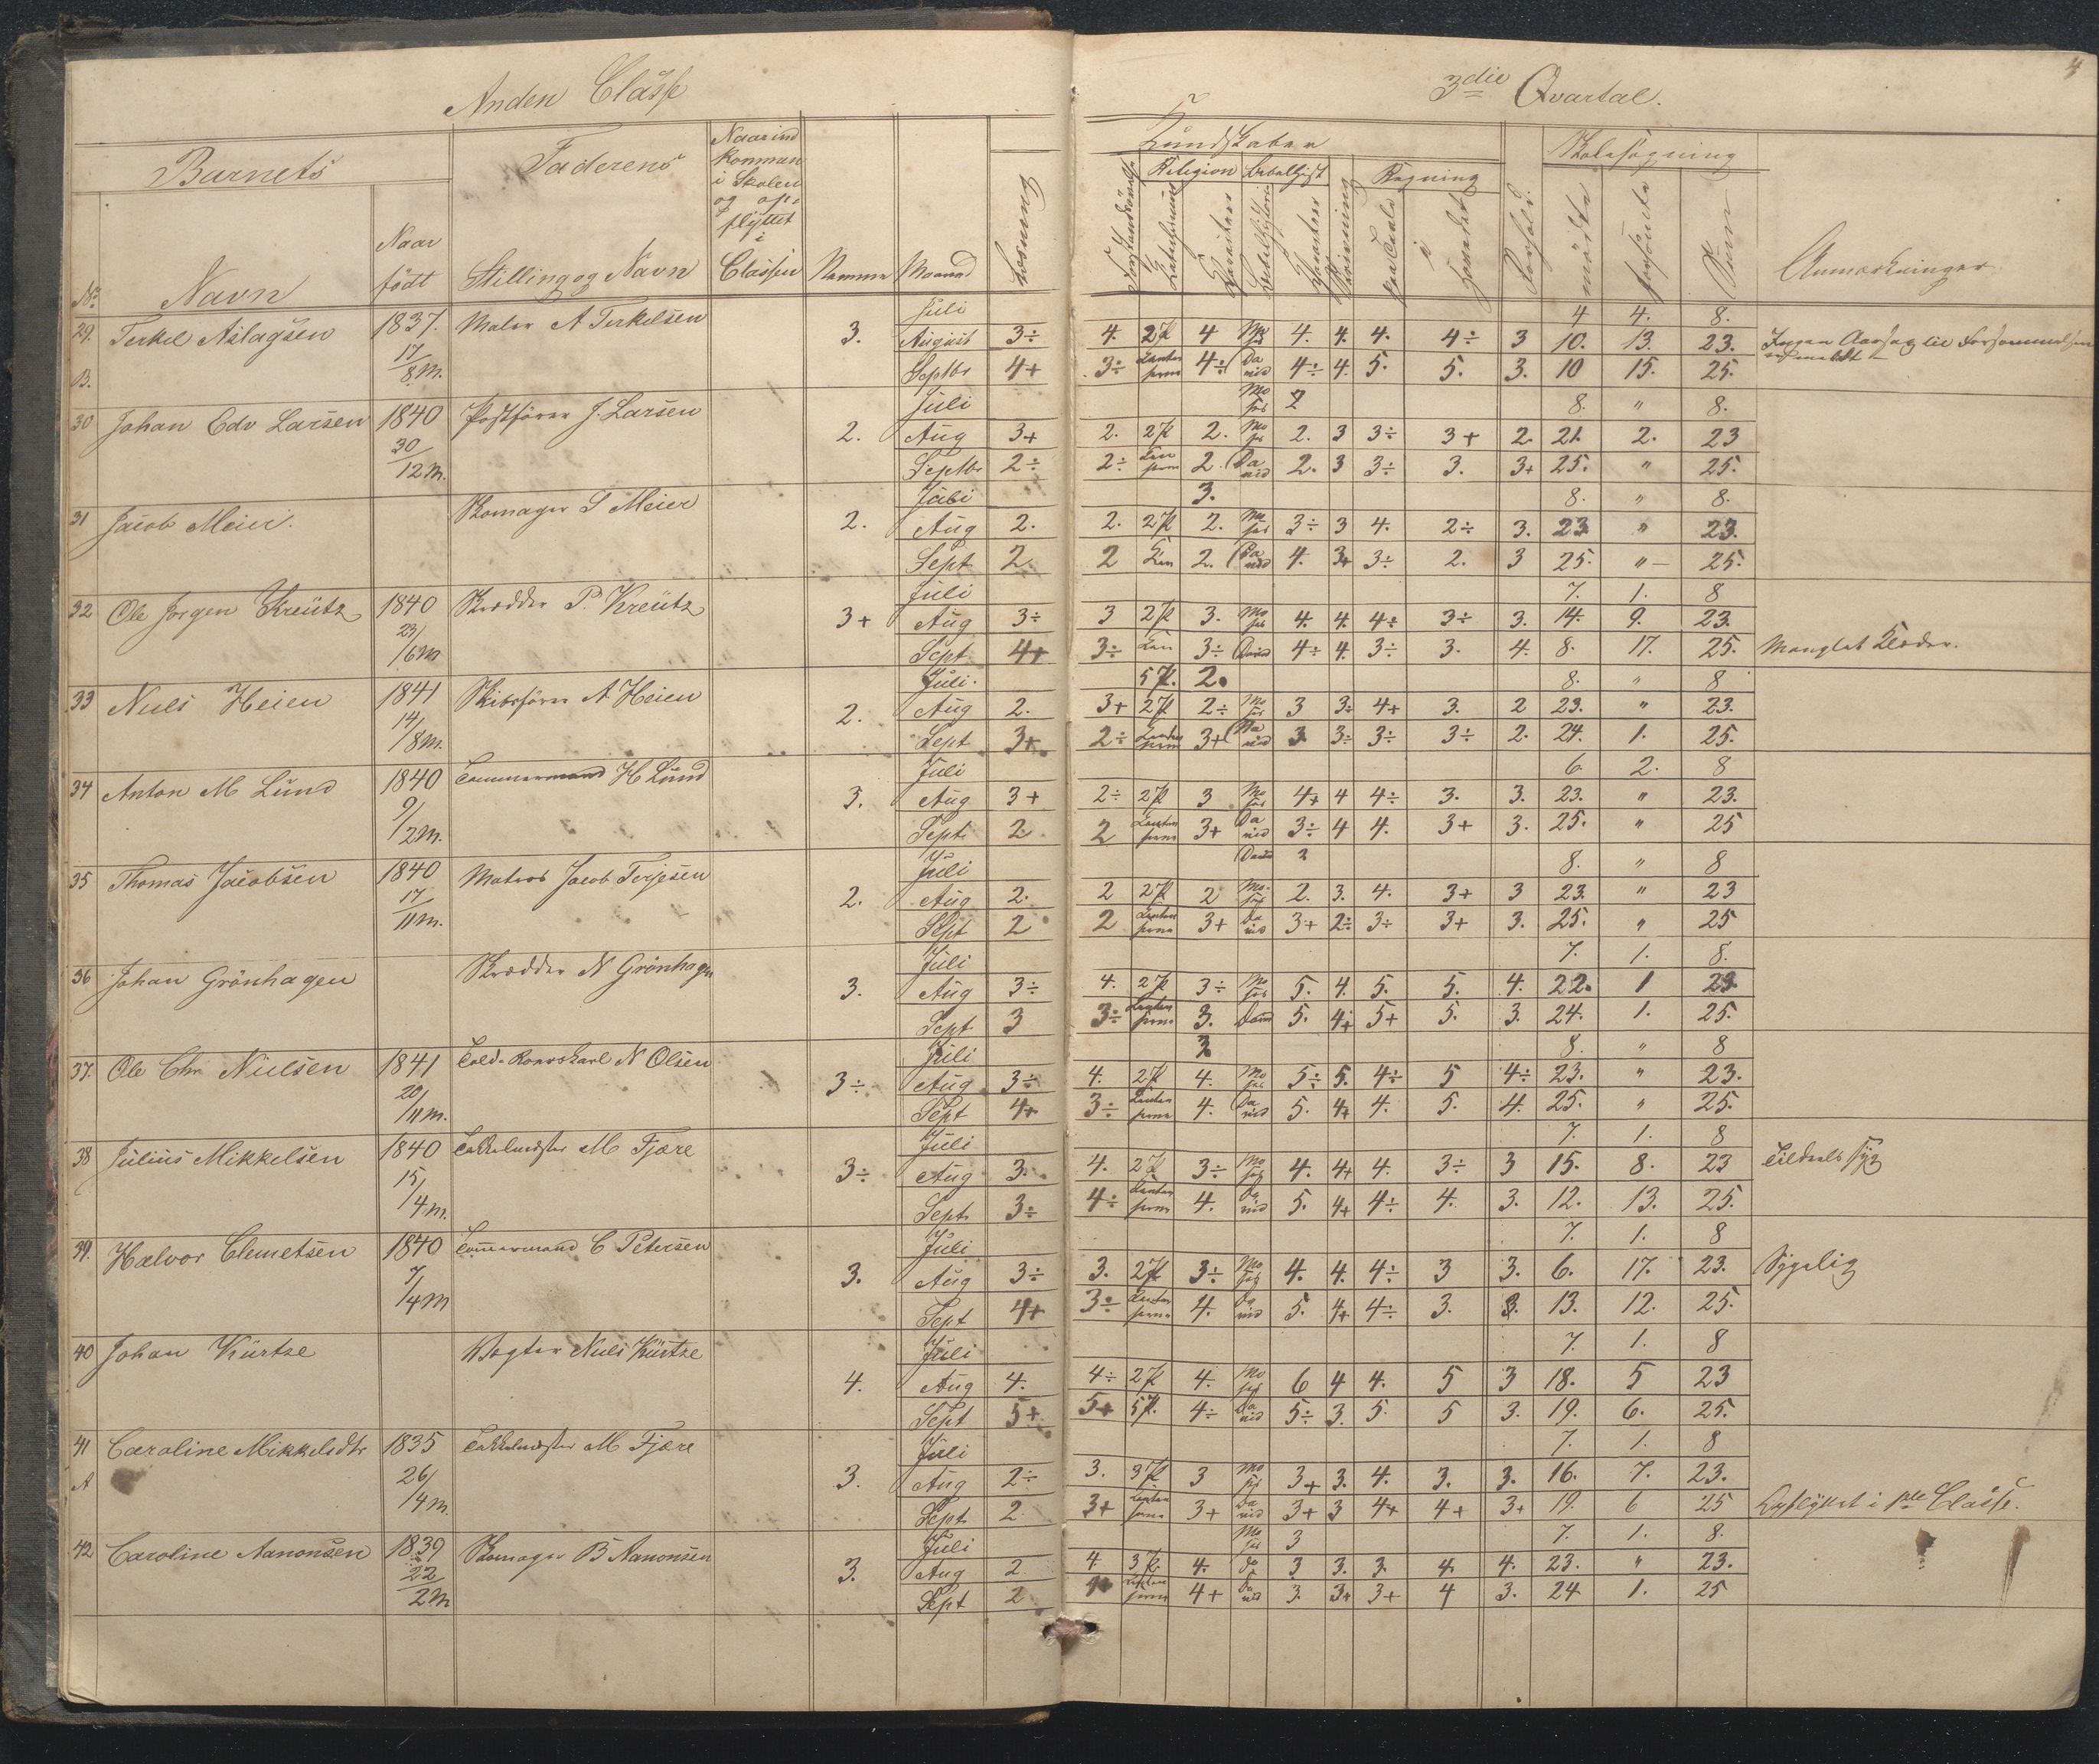 Anden Classe
3die Qvartal.
4
Barnets
Faderens
Naar ind
kommen
i Skolen
og op=
flyttet
i
Classen
Kundskaber
Religion
Regning
Skolesøgning
No
Navn
Naar
født
Stilling og Navn
Nummer
Maaned
Læsning
Forhold.
mødte
forsømte
Sum
Anmærkninger
Juli 4 4. 8.
29. Terkel Aslagsen 1837. Maler A Terkelsen 3. August 3÷ 4. 2 P 4 Mo ses 4. 4. 4. 4÷ 3 10. 13. 23. Ingen Aarsag til Forsømmelsen
B. 17/8 M. Septbr 4+ 3÷ 4÷ Da vid 4÷ 4. 5. 5. 3. 10 15. 25.
Juli Mo ses 2 8. " 8.
30 Johan Edv Larsen 1840 Postfører J. Larsen 2. Aug 3+ 2. 2 P 2. Mo ses 2. 3 3÷ 3+ 2. 21. 2. 23
30/12 M. Septbr 2÷ 2÷ 2. Da vid 2. 3 3÷ 3. 3+ 25. " 25.
Juli 3. 8. " 8.
31 Jacob Meier. Skomager S Meier 2. Aug 2. 2. 2 P 2. Mo ses 3÷ 3 4. 2÷ 3. 23 " 23.
Sept 2 2 2. Da vid 4. 3+ 3÷ 2. 3 25. " 25.
Juli 7. 1. 8
32 Ole Jørgen Kreütz 1840 Skrædder P. Kreütz 3+ Aug 3÷ 3 2 P 3. Mo ses 4. 4. 4÷ 3÷ 3. 14. 9. 23.
23/6 M Sept 4+ 3÷ 3÷ David 4÷ 4. 3÷ 3. 4. 8. 17. 25. Manglet Klæder.
Juli 5 P. 2. 8. " 8
33 Niels Heien 1841 Skibsfører A Heien 2. Aug 2. 3+ 2 P 2÷ Mo ses 3 3÷ 4+ 3. 2 23. " 23.
14/8 M. Sept 3+ 2÷ 3+ Da vid 3 3÷ 3÷ 3÷ 2. 24. 1. 25.
Juli 6 2. 8
34 Anton M Lund 1840 Tømmermand H Lund 3. Aug 3+ 2÷ 2 P 3 Mo ses 4+ 4 4÷ 3. 3. 23. " 23.
9/2 M. Sept 2 2 3+ Da vid 3÷ 4 4. 3+ 3. 25. " 25
Juli David 2 8. " 8
35 Thomas Jacobsen 1840 Matros Jacob Terjesen 2. Aug 2. 2 2 P 2 Mo ses 2. 3. 4. 3+ 3 23. " 23
17/11 M. Sept 2 2 3+ Da vid 3+ 2÷ 3÷ 3+ 3. 25. " 25
Juli 7. 1. 8.
36 Johan Grönhagen Skrædder N Grönhagen 3. Aug 3÷ 4. 2 P 3÷ Mo ses 5. 4. 5. 5. 4. 22. 1 23.
Sept 3 3÷ 3. David 5. 4+ 5+ 5. 3. 24. 1. 25.
Juli 3 8. " 8
37. Ole Chr. Nielsen 1841 Told-Roerskarl N Olsen 3÷ Aug 3÷ 4. 2 P 4. Mo ses 5÷ 5. 4÷ 5 4÷ 23. " 23.
20/11 M. Sept 4+ 3÷ 4. Da vid 5. 4+ 4. 5. 4. 25. " 25.
Juli 7. 1. 8
38 Julius Mikkelsen 1840 Takkelmester M Fjære 3÷ Aug 3. 4. 2 P 3÷ Mo ses 4. 4+ 4. 3÷ 3 15. 8. 23 Tildeels syg
15/4 M. Sept. 3÷ 4÷ 4. Da vid 5. 4+ 4÷ 4. 3. 12. 13. 25.
Juli 7. 1. 8
39. Halvor Clemetsen 1840 Tømmermand C Petersen 3. Aug 3÷ 3. 2 P 3÷ Mo ses 4. 4. 4÷ 3 3. 6. 17. 23. Sygelig
7/4 M Sept 4+ 3÷ 4. Da vid 5. 4+ 4÷ 3. 3. 13. 12. 25.
Juli 7. 1. 8
40 Johan Kürtze Vægter Niels Kürtze 4. Aug 4. 4÷ 2 P 4. Mo ses 6 4 4. 5 3 18. 5 23
Sept 5+ 5+ 5 P. 4÷ Da vid 5÷ 3. 5. 5 3. 19. 6. 25.
Juli 7. 1. 8
41 Caroline Mikkelsdtr 1835 Takkelmester M Fjære 3. Aug 2÷ 3. 3 P 3 Mo ses 3+ 3. 4. 3. 3. 16. 7. 23.
A 26/4 M. Sept. 2. 3+ 3+ Da vid 3+ 3 4+ 4+ 3+ 19. 6 25 Opflyttet i 1ste Classe.
Juli Mo ses 3 7. 1. 8.
42 Caroline Aanonsen 1839 Skomager B Aanonsen 3. Aug 2. 4. 3 P. 4. do 3 3. 3. 4. 4. 23. " 23.
22/2 M Sept 2 4+ Da vid 3. 3+ 3+ 4 3. 24. 1. 25